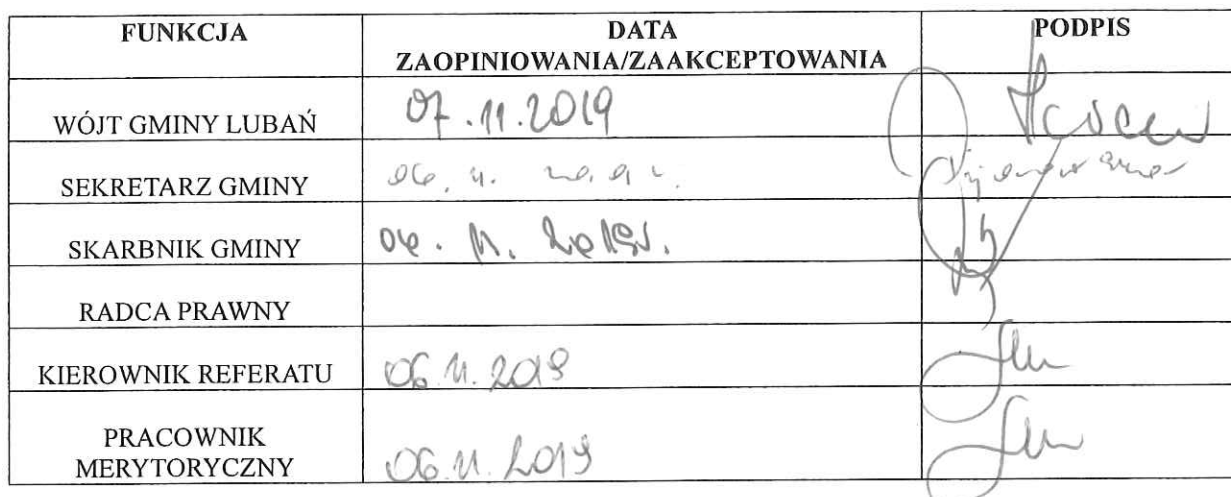 FUNKCJA DATA PODPIS
ZAOPINIOWANIA/ZAAKCEPTOWANIA
WÓJT GMINY LUBAŃ 07.11.2019
SEKRETARZ GMINY
SKARBNIK GMINY 06. 11. 2019r.
RADCA PRAWNY
KIEROWNIK REFERATU 06.11.2019
PRACOWNIK
MERYTORYCZNY 06.11.2019